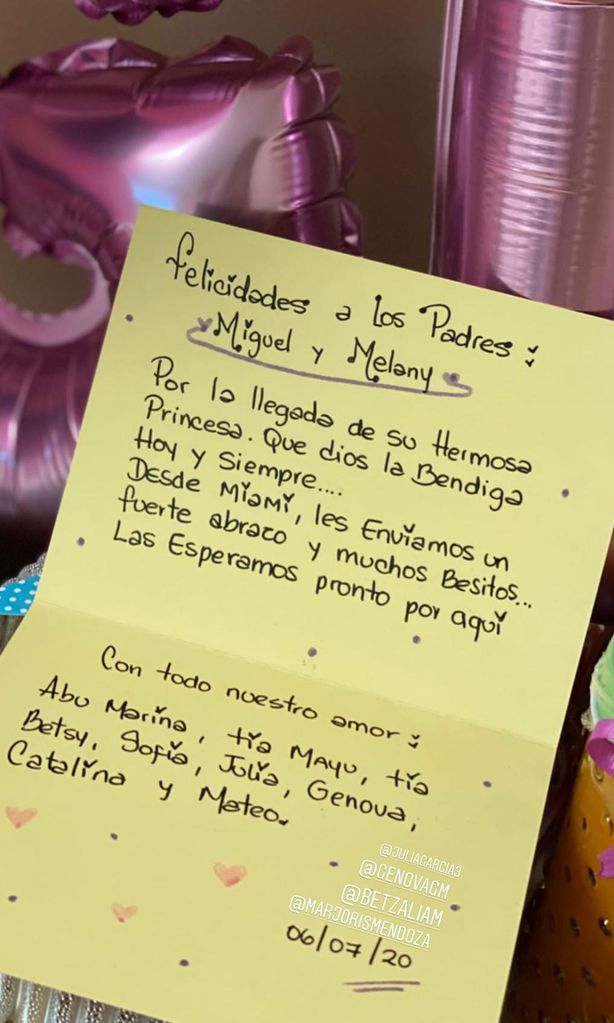 Felicidades a los Padres:
Miguel y Melany
Por la llegada de su Hermosa
Princesa. Que dios la Bendiga
Hoy y Siempre....
Desde Miami, les Enviamos un
fuerte abrazo y muchos Besitos...
Las Esperamos pronto por aquí
Con todo nuestro amor:
Abu Marina, tía Mayu, tía
Betsy, Sofía, Julia, Genova,
Catalina y Mateo.
@JULIAGARCIA3
@GENOVAGM
@BETZALIAM
@MARJORISMENDOZA
06/07/20